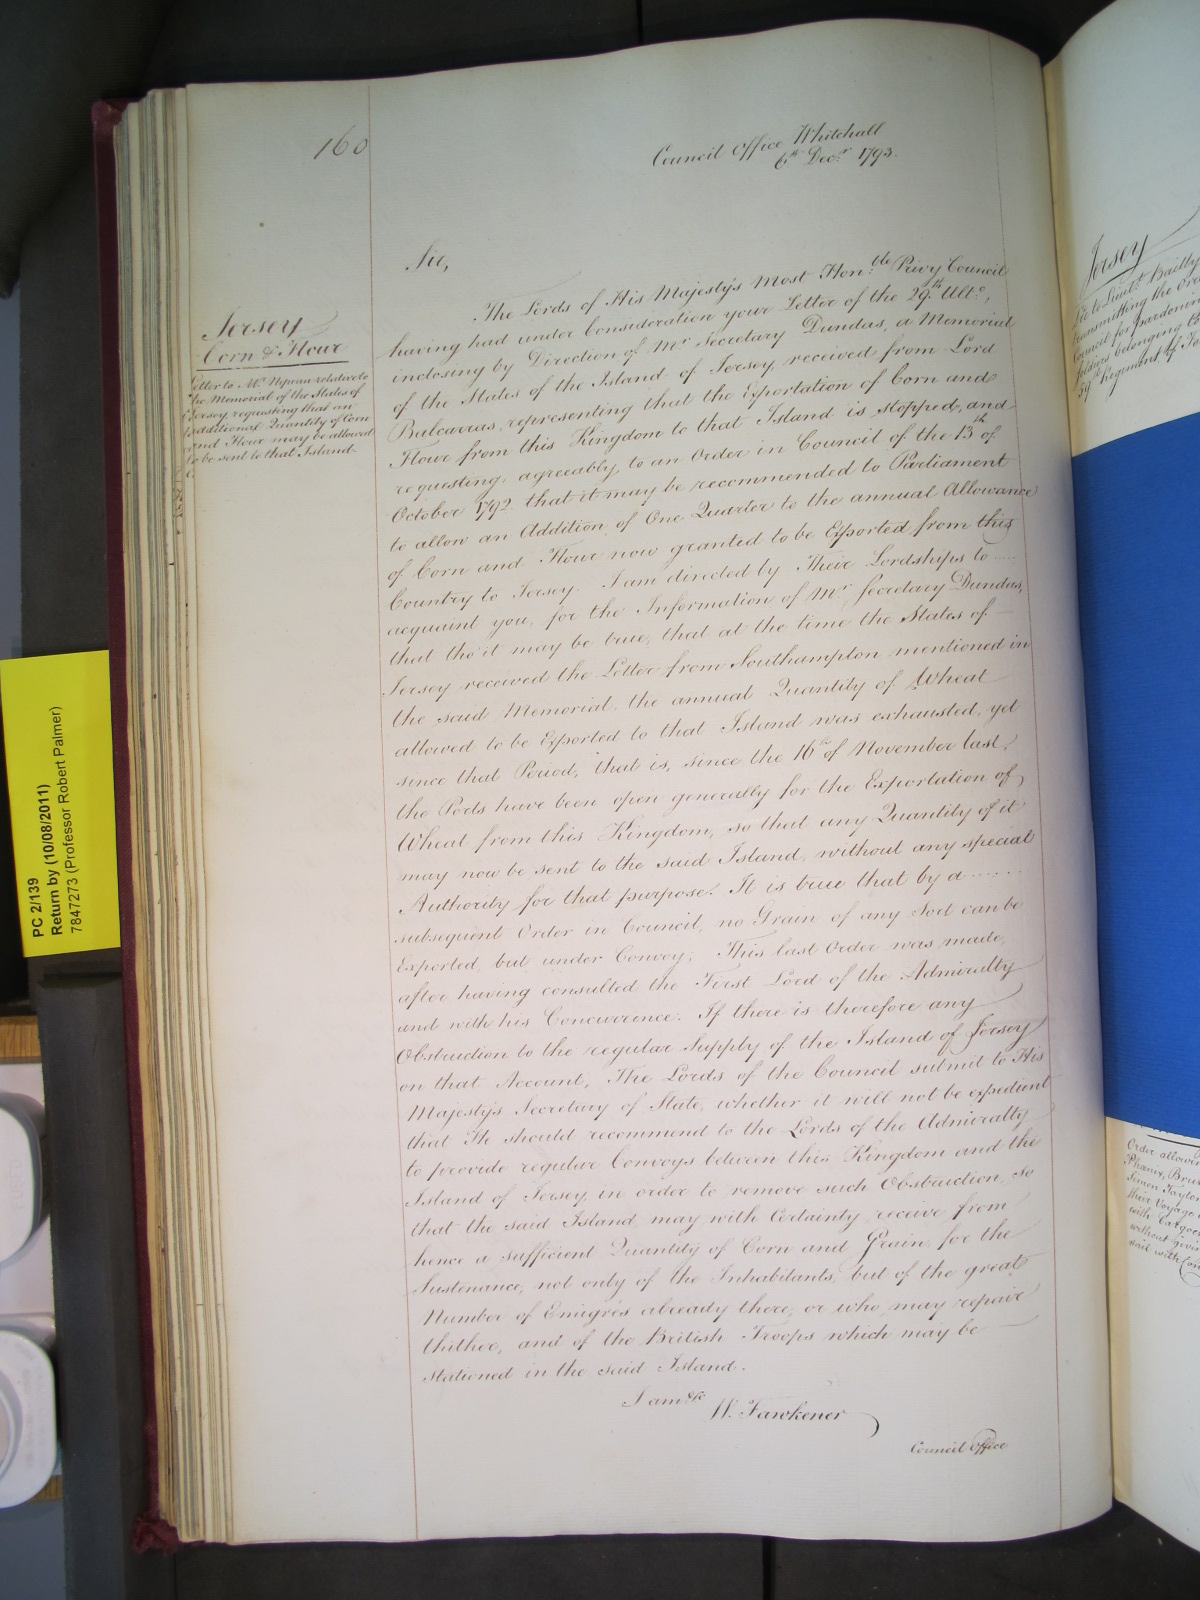 160
Council Office Whitehall
6th Decr. 1793.
Sir,
Jersey
Corn & Flour
Letter to Mr. Nepean relative to
the Memorial of the States of
Jersey, requesting that an
additional Quantity of Corn
and Flour may be allowed
to be sent to that Island.
The Lords of His Majesty's Most Honble. Privy Council
having had under Consideration your Letter of the 29th. Ulto.,
inclosing by Direction of Mr Secretary Dundas, a Memorial
of the States of the Island of Jersey, received from Lord
Balcarras, representing that the Exportation of Corn and
Flour from this Kingdom to that Island is stopped, and
requesting, agreeably to an Order in Council of the 13th of
October 1792 that it may be recommended to Parliament
to allow an Addition of One Quarter to the annual Allowance
of Corn and Flour now granted to be Exported from this
Country to Jersey. I am directed by Their Lordships to .....
acquaint you, for the Information of Mr. Secretary Dundas,
that tho' it may be true, that at the time the States of
Jersey received the Letter from Southampton mentioned in
the said Memorial, the annual Quantity of Wheat
allowed to be Exported to that Island was exhausted, yet
since that Period, that is, since the 16th of November last,
the Ports have been open generally for the Exportation of
Wheat from this Kingdom, so that any Quantity of it
may now be sent to the said Island, without any special
Authority for that purpose. It is true that by a .......
subsequent Order in Council, no Grain of any Sort can be
Exported, but under Convoy; This last Order was made,
after having consulted the First Lord of the Admiralty
and with his Concurrence. If there is therefore any
Obstruction to the regular Supply of the Island of Jersey
on that Account, The Lords of the Council submit to His
Majesty's Secretary of State, whether it will not be expedient
that He should recommend to the Lords of the Admiralty
to provide regular Convoys between this Kingdom and the
Island of Jersey, in order to remove such Obstruction, so
that the said Island may with Certainty receive from
hence a sufficient Quantity of Corn and Grain, for the
Sustenance, not only of the Inhabitants, but of the great
Number of Emigrés already there, or who may repair
thither, and of the British Troops which may be
stationed in the said Island.
I am &c
W. Fawkener
Council Office
PC 2/139
Return by (10/08/2011)
7847273 (Professor Robert Palmer)
Jersey
Lre to Lieut. Bailly
transmitting the Ord
Council for pardoning
Soldiers belonging to
59th Regiment, of Fo
Order allowin
Phoenix, Bru
Simon Taylor
their Voyage
with Cargoe
without givin
sail with Con